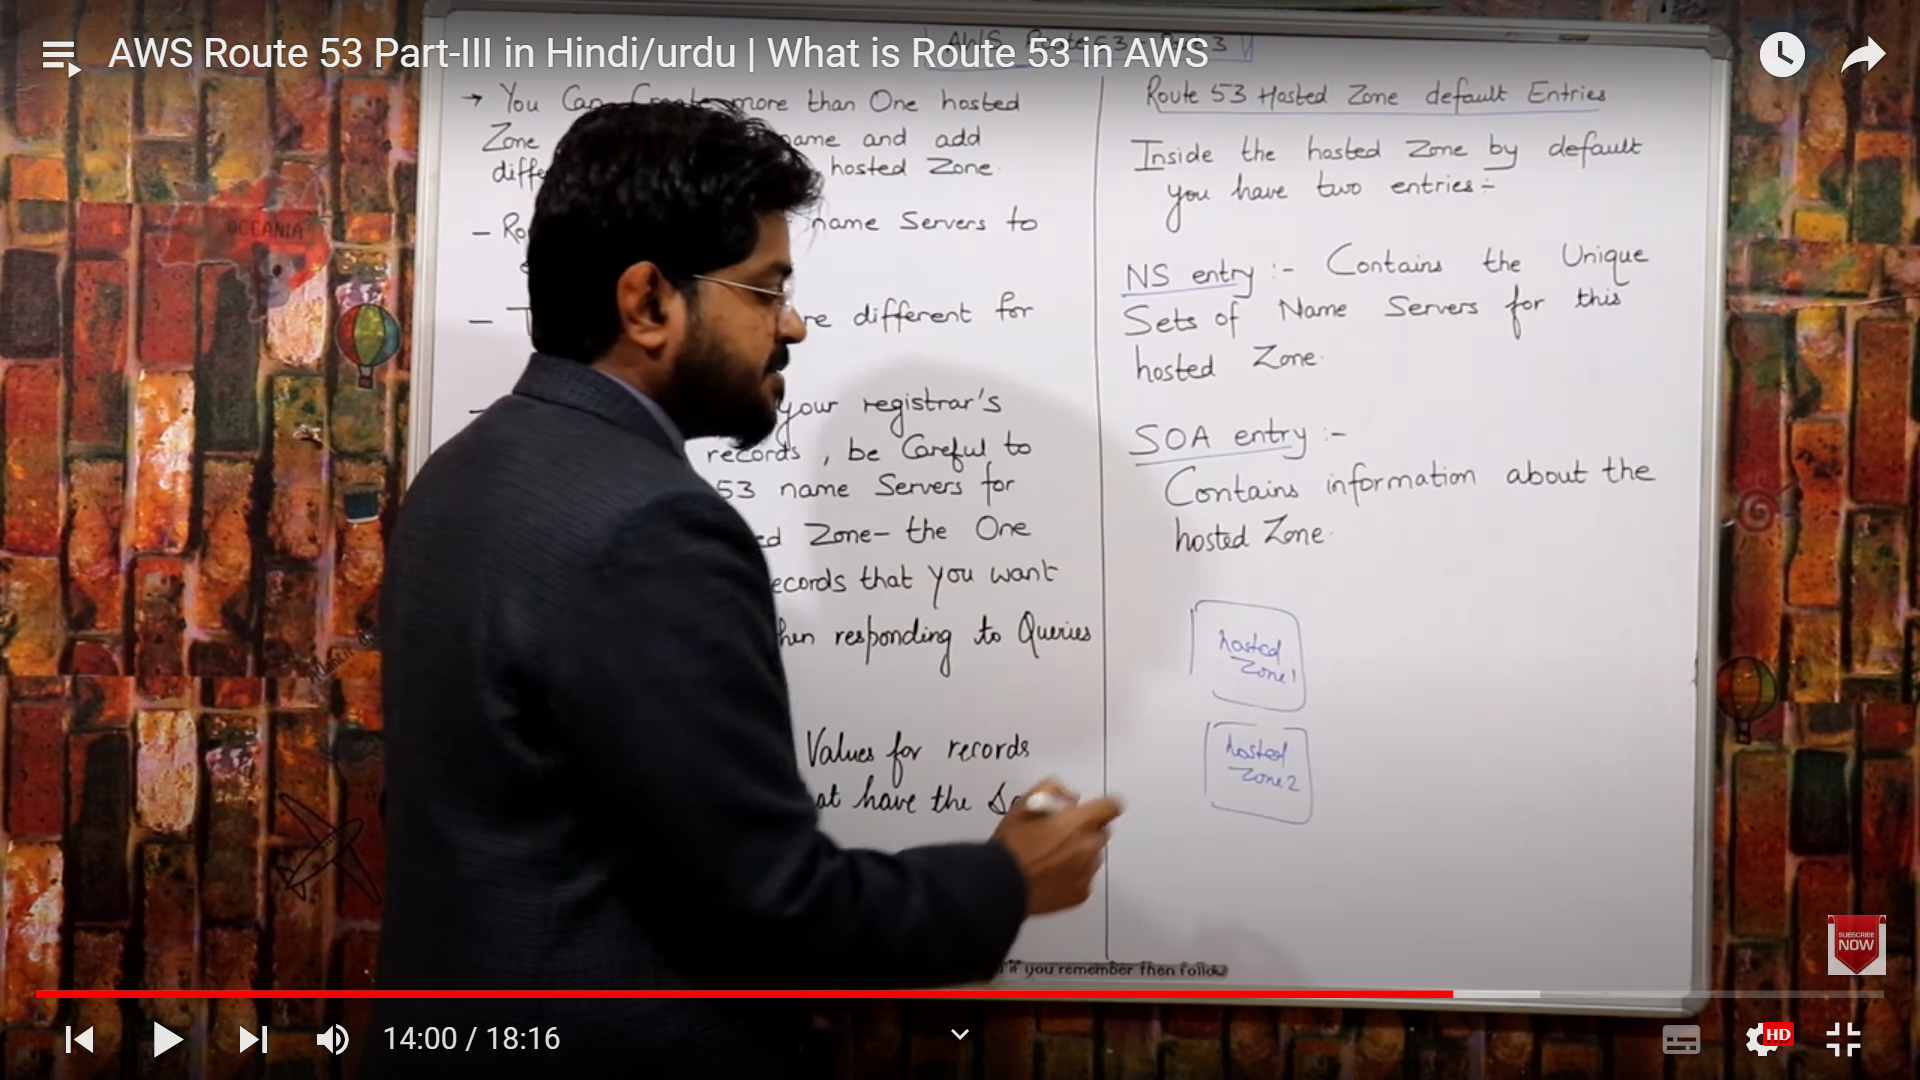 AWS Route 53 Part-III in Hindi/urdu | What is Route 53 in AWS
→ You Can Create more than One hosted
Zone name and add
hosted Zone.
- name Servers to
- different for
- your registrar's
records, be Careful to
53 name Servers for
Zone- the One
records that you want
responding to Queries
Values for records
have the
Route 53 Hosted Zone default Entries
Inside the hosted Zone by default
you have two entries:-
NS entry :- Contains the Unique
Sets of Name Servers for this
hosted Zone.
SOA entry :-
Contains information about the
hosted Zone.
hosted
Zone 1
hosted
Zone 2
if you remember then follow
OCEANIA
SUBSCRIBE
NOW
14:00 / 18:16
HD